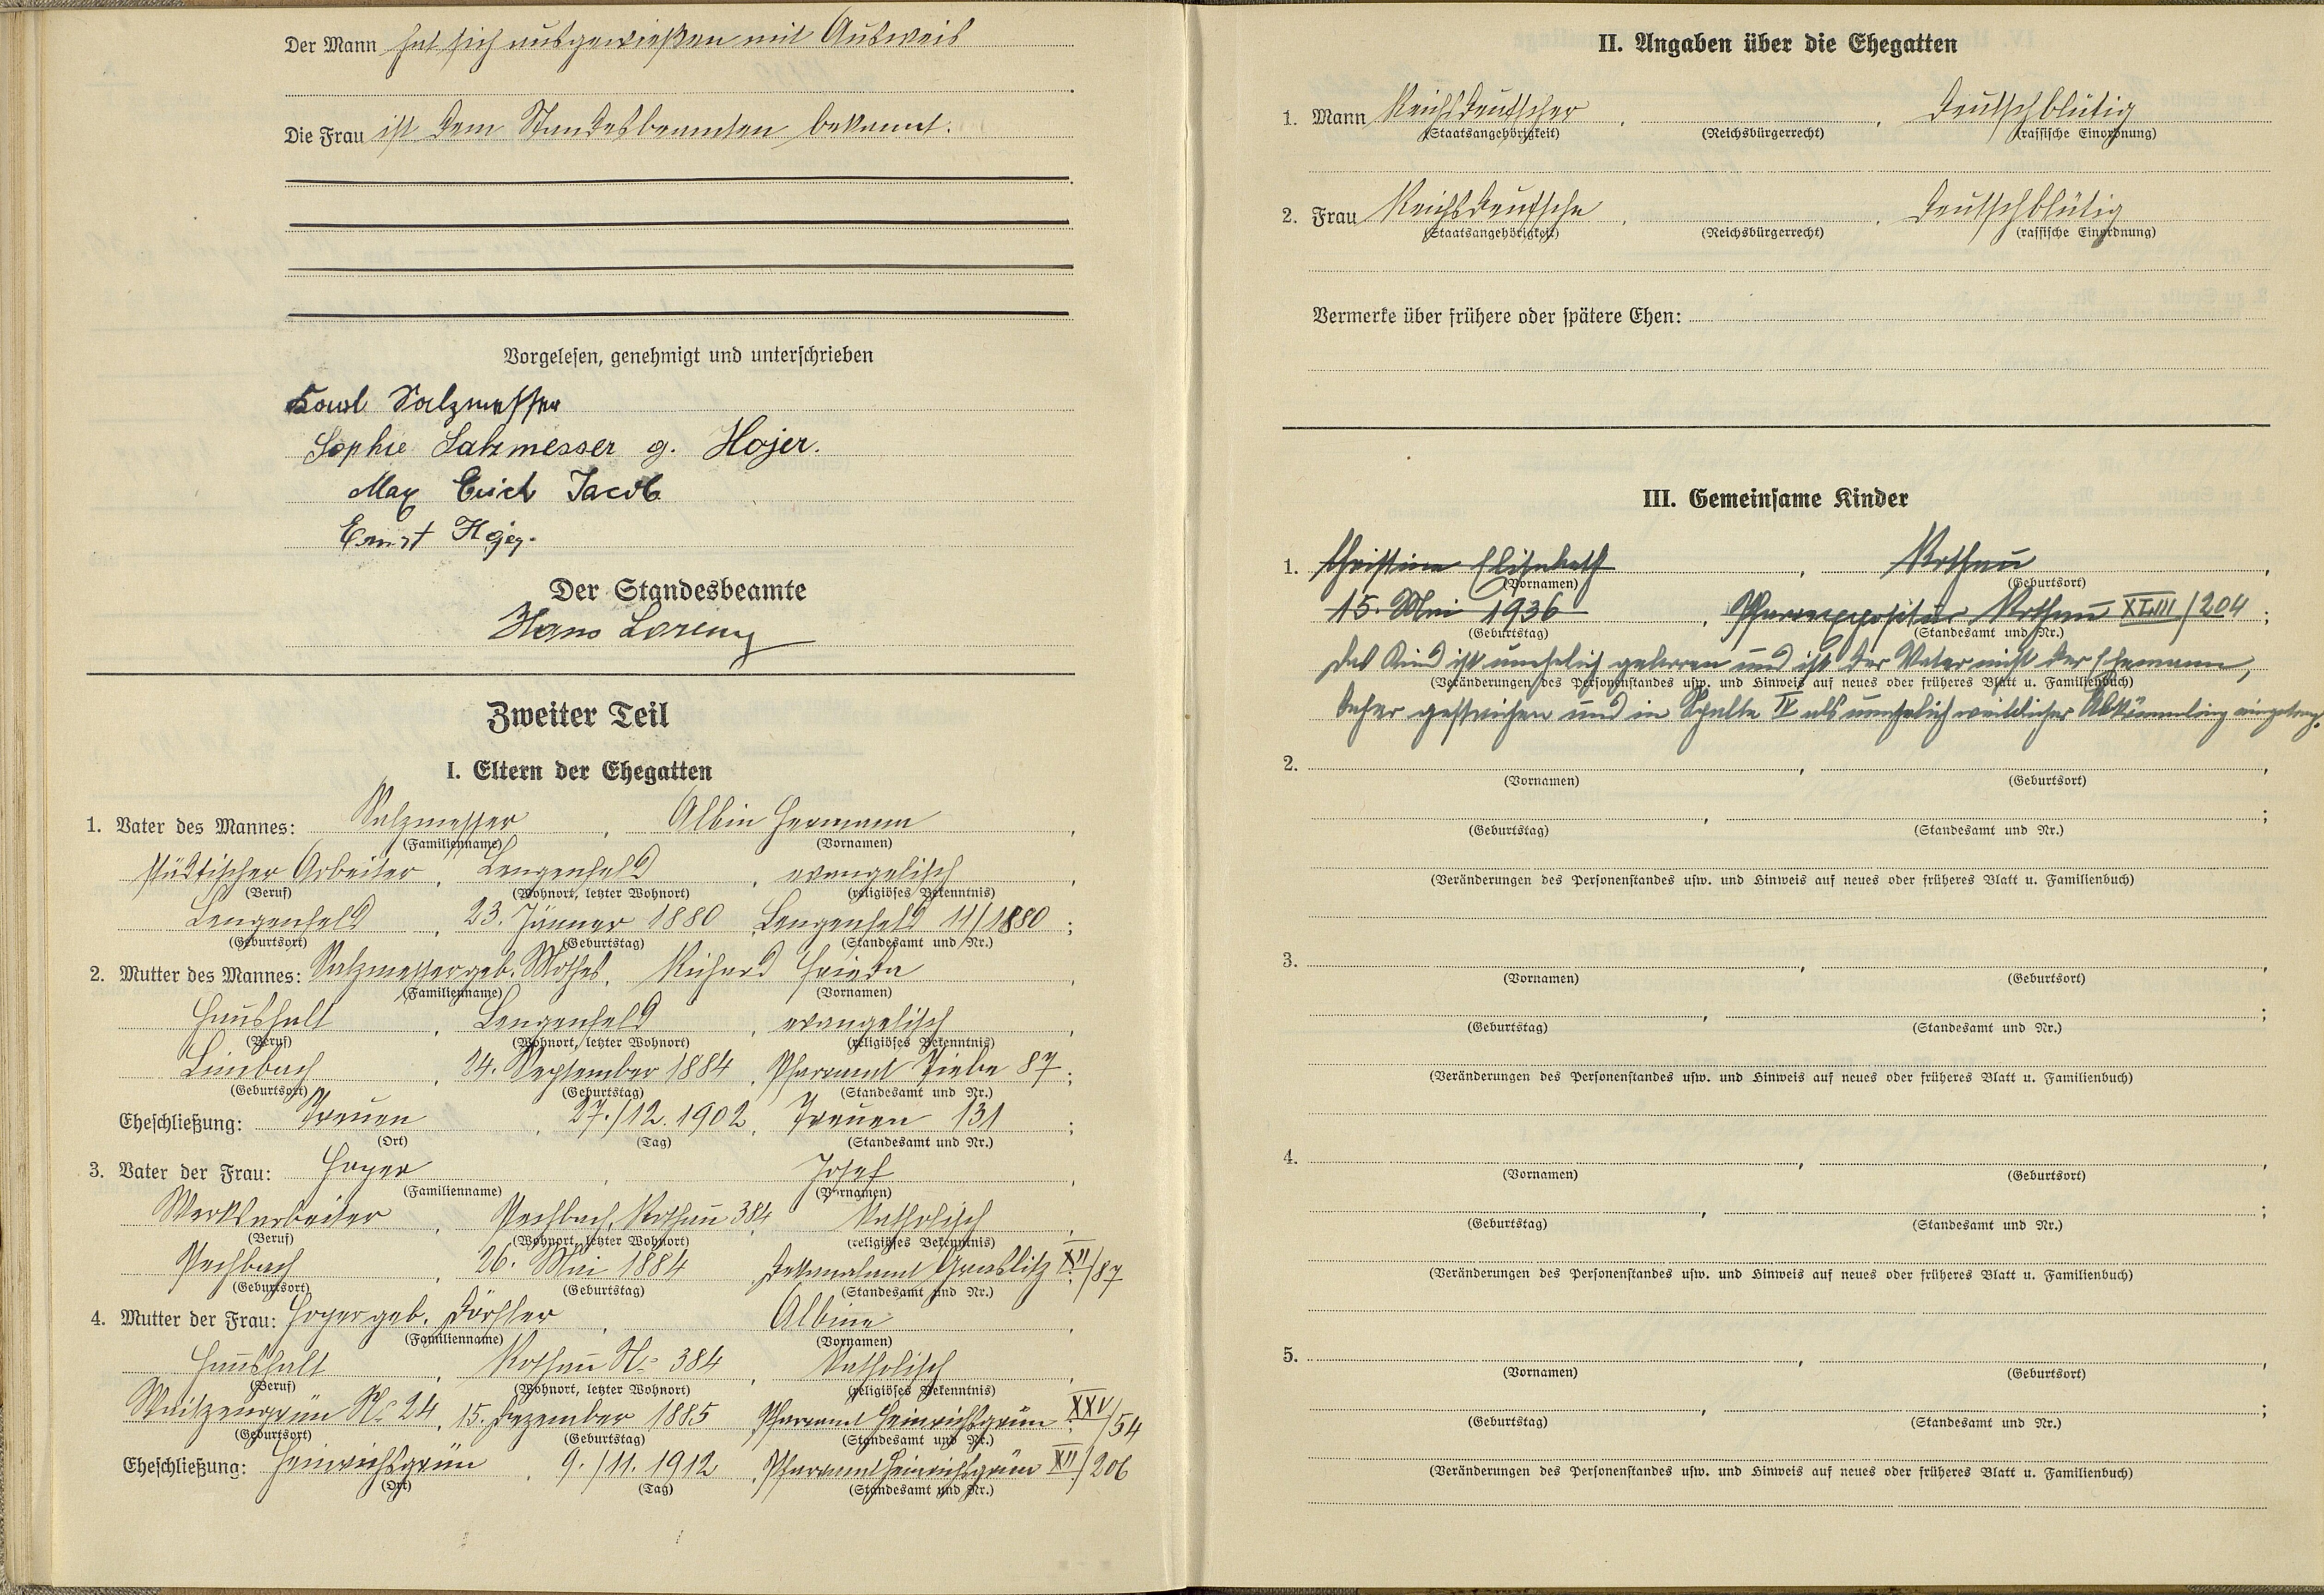 Der Mann hat sich ausgewießen mit Ausweis
Die Frau ist dem Standesbeamten bekannt.
Vorgelesen, genehmigt und unterschrieben
Karl Salzmesser
Sophie Salzmesser g. Hojer.
Max Erich Jacob
Ernst Hojer.
Der Standesbeamte
Hans Lorenz
Zweiter Teil
I. Eltern der Ehegatten
1. Vater des Mannes: Salzmesser, Albin Hermann,
(Familienname) (Vornamen)
städtischer Arbeiter, Lengenfeld, evangelisch,
(Beruf) (Wohnort, letzter Wohnort) (religiöses Bekenntnis)
Lengenfeld, 23. Jänner 1880, Lengenfeld 11/1880;
(Geburtsort) (Geburtstag) (Standesamt und Nr.)
2. Mutter des Mannes: Salzmesser geb. Mothes, Frieda,
(Familienname) (Vornamen)
Haushalt, Lengenfeld, evangelisch,
(Beruf) (Wohnort, letzter Wohnort) (religiöses Bekenntnis)
Limbach, 24. September 1884, Pfarramt 87;
(Geburtsort) (Geburtstag) (Standesamt und Nr.)
Eheschließung: Treuen, 27./12. 1902, Treuen 131;
(Ort) (Tag) (Standesamt und Nr.)
3. Vater der Frau: Hoyer, Josef,
(Familienname) (Vornamen)
Werksarbeiter, Pechbach, Rothau 384, katholisch,
(Beruf) (Wohnort, letzter Wohnort) (religiöses Bekenntnis)
Pechbach, 26. Mai 1884, Dekanalamt Graslitz XII/87
(Geburtsort) (Geburtstag) (Standesamt und Nr.)
4. Mutter der Frau: Hoyer geb. Dörfler, Albine,
(Familienname) (Vornamen)
Haushalt, Rothau No 384, katholisch,
(Beruf) (Wohnort, letzter Wohnort) (religiöses Bekenntnis)
Waitzengrün No 24, 15. Dezember 1885 Pfarramt Heinrichsgrün XXV/54
(Geburtsort) (Geburtstag) (Standesamt und Nr.)
Eheschließung: Heinrichsgrün, 9./11. 1912, Pfarramt Heinrichsgrün XII/206
(Ort) (Tag) (Standesamt und Nr.)
II. Angaben über die Ehegatten
1. Mann Reichsdeutscher, , deutschblütig
(Staatsangehörigkeit) (Reichsbürgerrecht) (rassische Einordnung)
2. Frau Reichsdeutsche, , deutschblütig
(Staatsangehörigkeit) (Reichsbürgerrecht) (rassische Einordnung)
Vermerke über frühere oder spätere Ehen:
III. Gemeinsame Kinder
1. Christine Elisabeth, Rothau,
(Vornamen) (Geburtsort)
15. Mai 1936, Pfarrexpositur Rothau XLIII/204;
(Geburtstag) (Standesamt und Nr.)
Das Kind ist unehelich geboren und ist der Vater nicht der Ehemann,
(Veränderungen des Personenstandes usw. und Hinweis auf neues oder früheres Blatt u. Familienbuch)
daher gestrichen und in Spalte IV als unehelich weiblicher Abkömmling eingetrag.
2. , ,
(Vornamen) (Geburtsort)
, ;
(Geburtstag) (Standesamt und Nr.)
(Veränderungen des Personenstandes usw. und Hinweis auf neues oder früheres Blatt u. Familienbuch)
3. , ,
(Vornamen) (Geburtsort)
, ;
(Geburtstag) (Standesamt und Nr.)
(Veränderungen des Personenstandes usw. und Hinweis auf neues oder früheres Blatt u. Familienbuch)
4. , ,
(Vornamen) (Geburtsort)
, ;
(Geburtstag) (Standesamt und Nr.)
(Veränderungen des Personenstandes usw. und Hinweis auf neues oder früheres Blatt u. Familienbuch)
5. , ,
(Vornamen) (Geburtsort)
, ;
(Geburtstag) (Standesamt und Nr.)
(Veränderungen des Personenstandes usw. und Hinweis auf neues oder früheres Blatt u. Familienbuch)